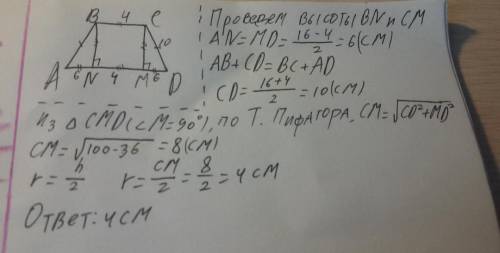 B 4 C
10
A 6 N 4 M 6 D
Проведем высоты BN и CM
AN=MD=\frac{16-4}{2}=6(см)
AB+CD=BC+AD
CD=\frac{16+4}{2}=10(см)
из △ CMD(∠M=90°), по Т. Пифагора, CM=√CD²+MD²
CM=√100-36=8(см)
r=\frac{h}{2} r=\frac{CM}{2}=\frac{8}{2}=4 см
Ответ: 4 см